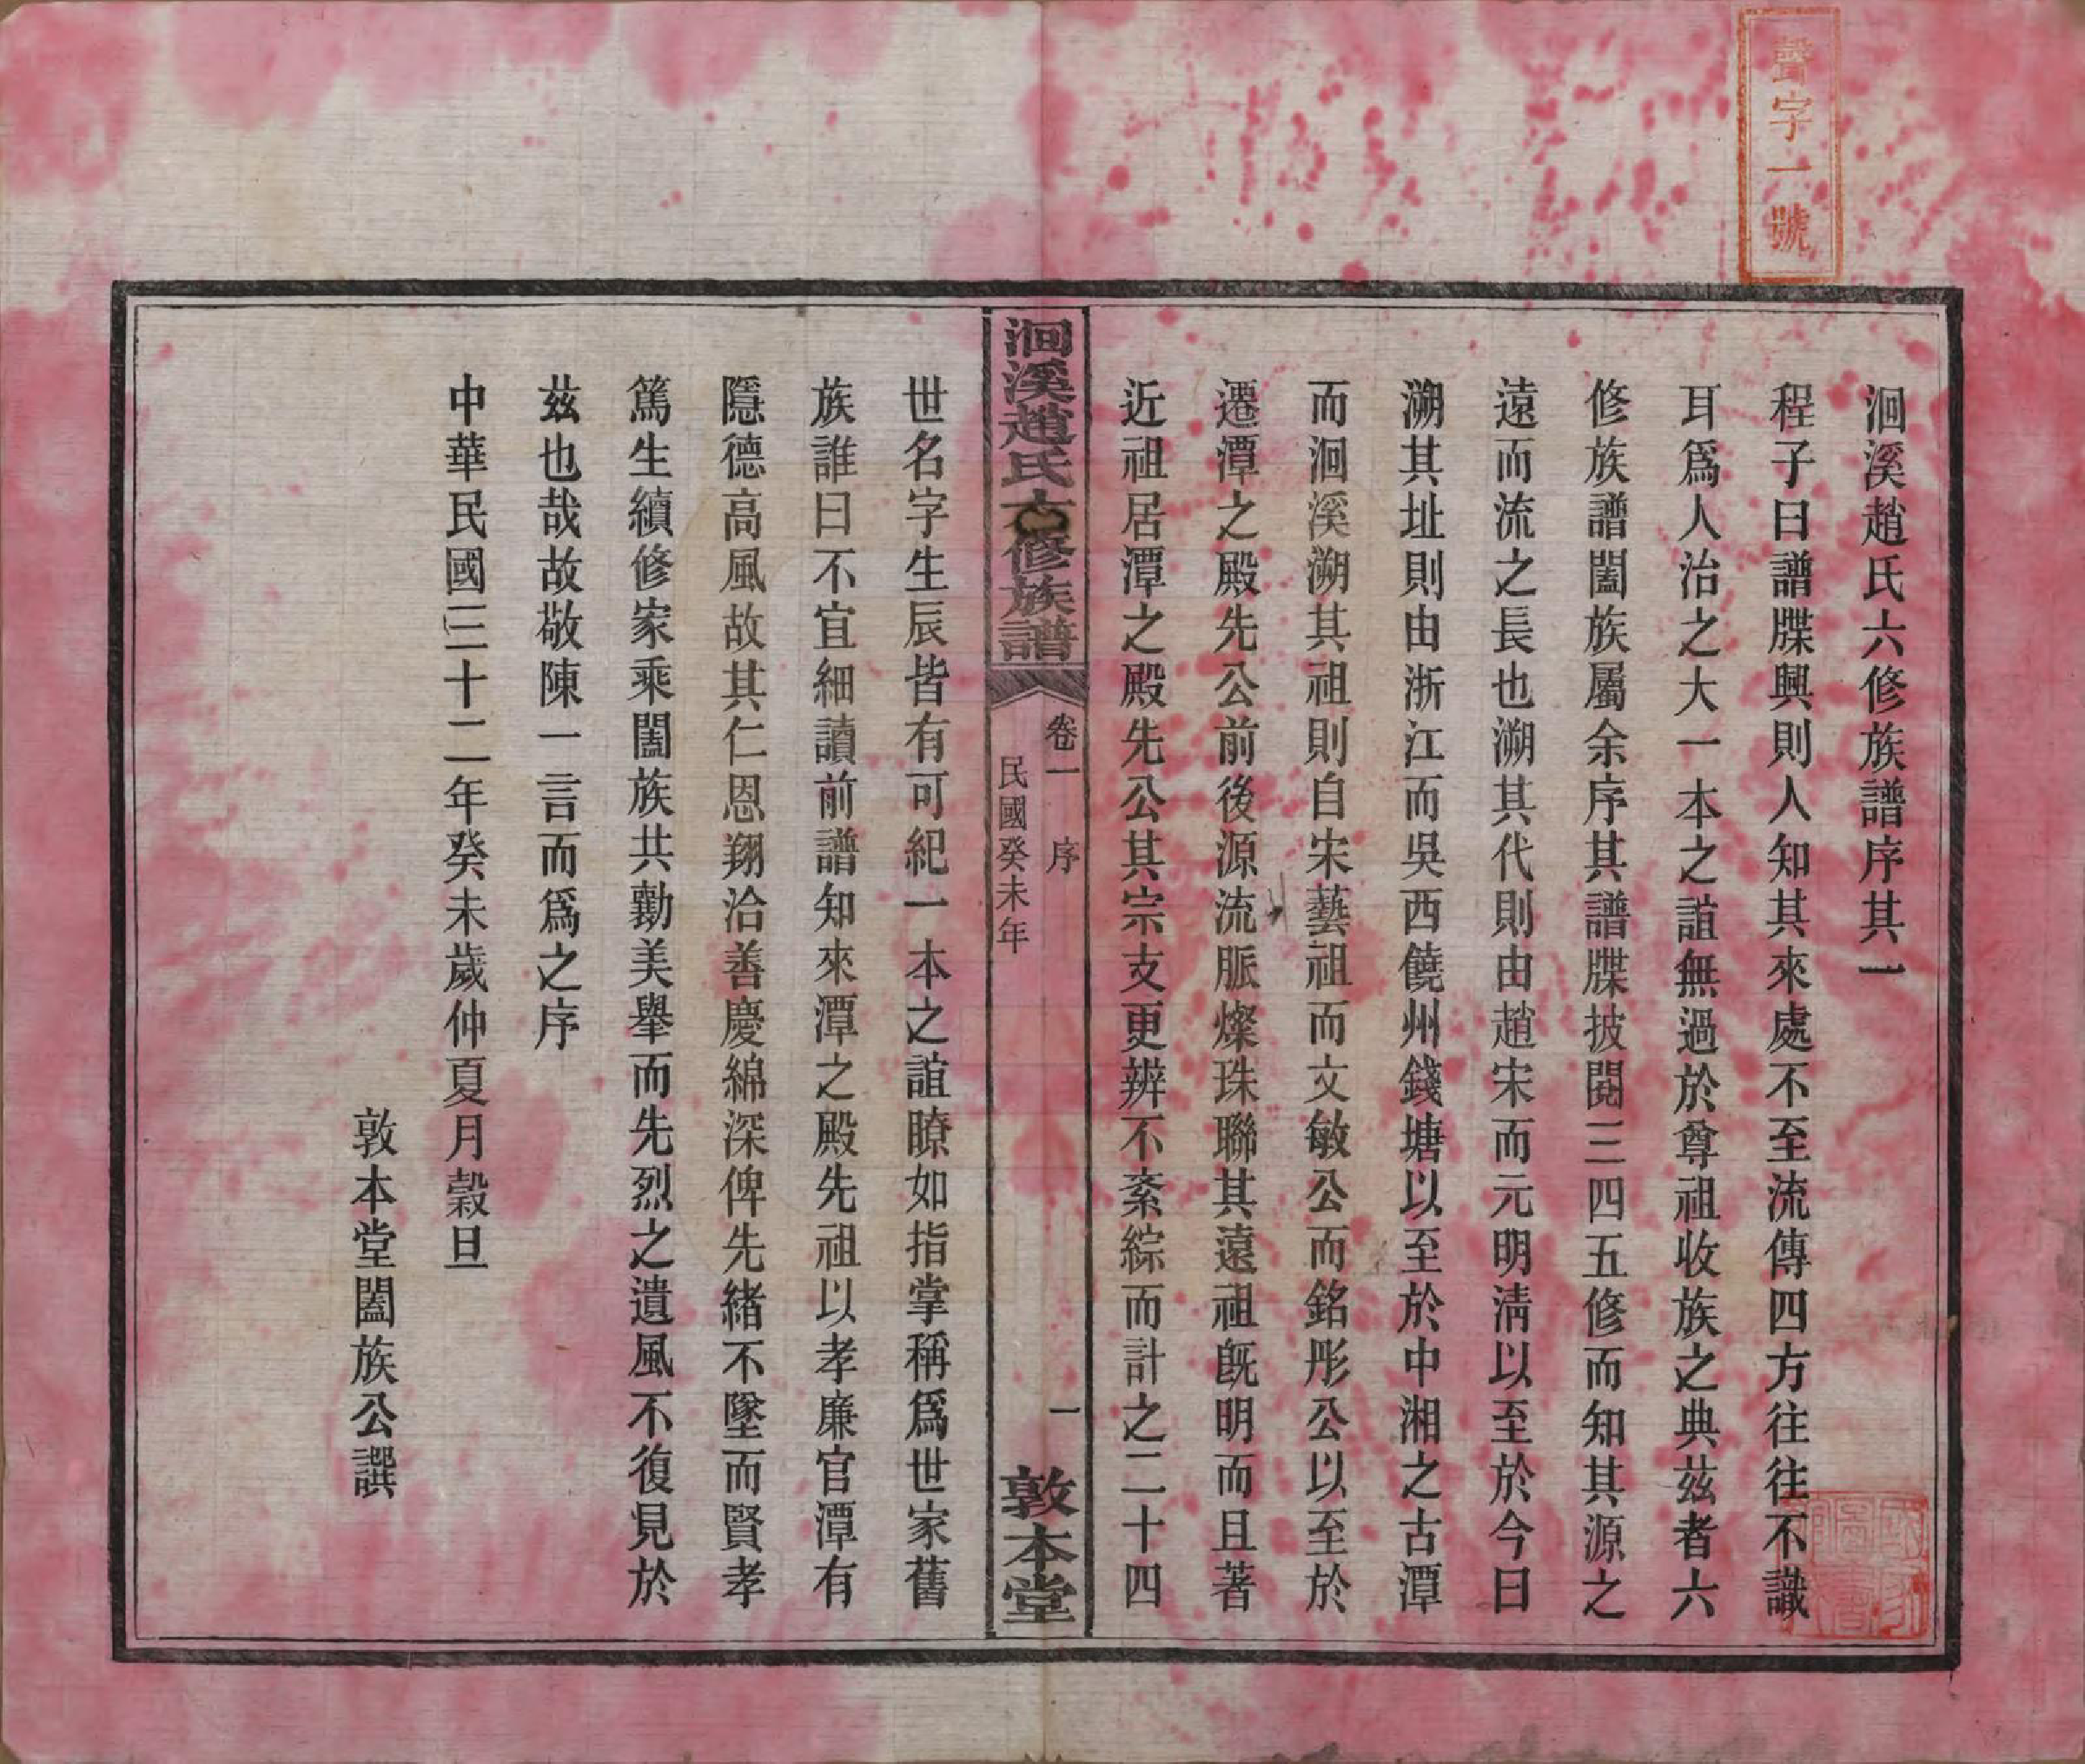 聲字一號
洄溪趙氏六修族譜序其一
程子曰譜牒興則人知其來處不至流傳四方往往不識
耳爲人治之大一本之誼無過於尊祖收族之典茲者六
修族譜闔族屬余序其譜牒披閱三四五修而知其源之
遠而流之長也溯其代則由趙宋而元明清以至於今日
溯其址則由浙江而吳西饒州錢塘以至於中湘之古潭
而洄溪溯其祖則自宋藝祖而文敏公而銘彤公以至於
遷潭之殿先公前後源流脈燦珠聯其遠祖旣明而且著
近祖居潭之殿先公其宗支更辨不紊綜而計之二十四
洄溪趙氏六修族譜
卷一 序
一
民國癸未年
敦本堂
世名字生辰皆有可紀一本之誼瞭如指掌稱爲世家舊
族誰曰不宜細讀前譜知來潭之殿先祖以孝廉官潭有
隱德高風故其仁恩翔洽善慶綿深俾先緒不墜而賢孝
篤生續修家乘闔族共勷美舉而先烈之遺風不復見於
茲也哉故敬陳一言而爲之序
中華民國三十二年癸未歲仲夏月穀旦
敦本堂闔族公譔